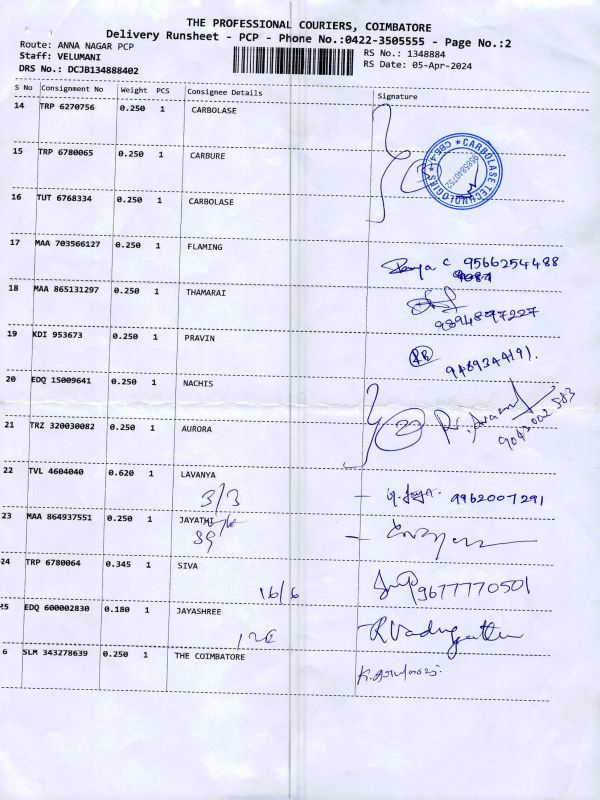 THE PROFESSIONAL COURIERS, COIMBATORE
Delivery Runsheet - PCP - Phone No.:0422-3505555 - Page No.:2
Route: ANNA NAGAR PCP
RS No.: 1348884
Staff: VELUMANI
RS Date: 05-Apr-2024
DRS No.: DCJB134888402
S No Consignment No Weight PCS Consignee Details Signature
14 TRP 6270756 0.250 1 CARBOLASE
15 TRP 6780065 0.250 1 CARBURE
CARBOLASE TECHNOLOGIES ★ CBE-4 ★
16 TUT 6768334 0.250 1 CARBOLASE
17 MAA 703566127 0.250 1 FLAMING
9566254488
18 MAA 865131297 0.250 1 THAMARAI
9894897227
19 KDI 953673 0.250 1 PRAVIN
20 EDQ 15009641 0.250 1 NACHIS
2
9043002583
21 TRZ 320030082 0.250 1 AURORA
22 TVL 4604040 0.620 1 LAVANYA
3/3
9962007291
23 MAA 864937551 0.250 1 JAYATHI
24 TRP 6780064 0.345 1 SIVA
9677770501
16/6
25 EDQ 600002830 0.180 1 JAYASHREE
6 SLM 343278639 0.250 1 THE COIMBATORE